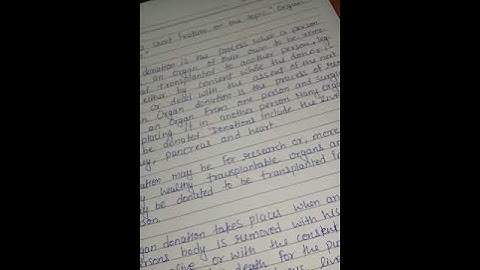 Short Feature on the topic "Organ
donation is the process when a person
an organ of their own to be remo
transplanted to another person, leg
either by consent while the donor is
or dead with the assent of the next
Organ donation is the process of
an organ from one person and surgic
placing it in another person. Many organ
be donated. Donations include the liver
pancreas and heart.
ation may be for research or, more
healthy transplantable organs and
be donated to be transplanted in
son.
gan donation takes places when an
ersons body is removed with his
alive or with the consent
death for the